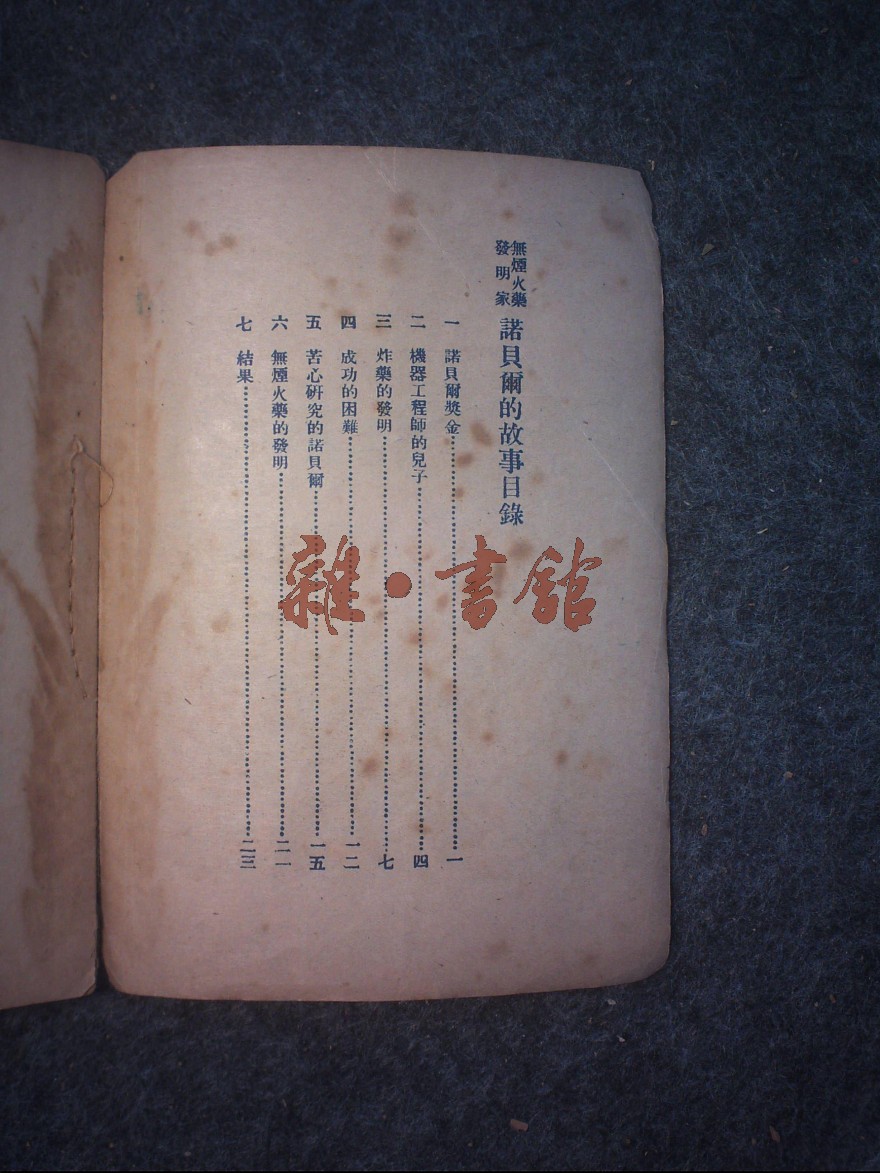 無煙火藥
發明家
諾貝爾的故事目錄
一 諾貝爾獎金…………一
二 機器工程師的兒子…………四
三 炸藥的發明…………七
四 成功的困難…………一二
五 苦心研究的諾貝爾…………一五
六 無煙火藥的發明…………二一
七 結果…………二三
雜·書館